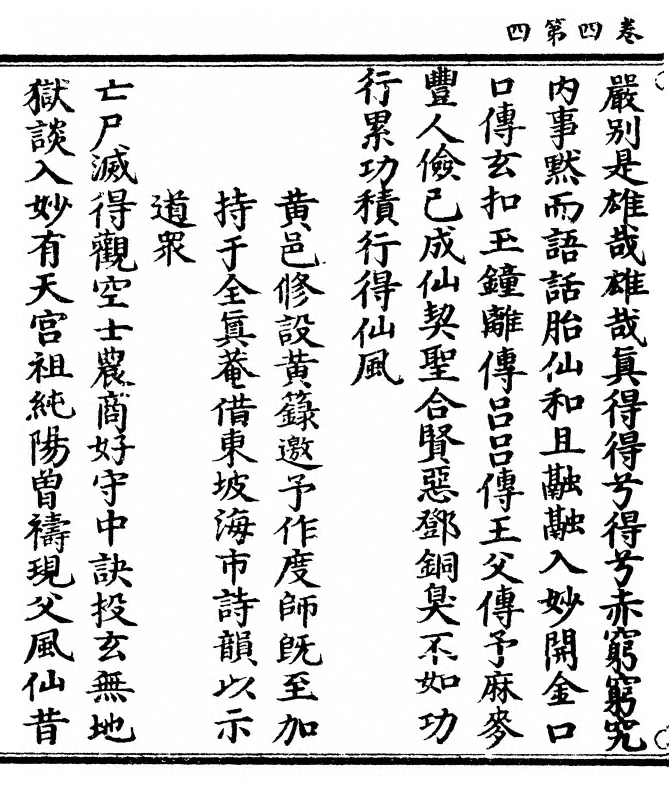 卷四第四
嚴别是雄哉雄哉眞得得兮得兮赤窮窮究
内事黙而語話胎仙和且融融入妙開金口
口傳玄扣玉鐘離傳吕吕傳王父傳予麻麥
豐人儉己成仙契聖合賢惡鄧銅臭不如功
行累功積行得仙風
黄邑修設黄籙邀予作度師既至加
持于全眞菴借東坡海市詩韻以示
道衆
亡尸滅得觀空士農商好守中訣投玄無地
獄談入妙有天宫祖純陽曽禱現父風仙昔